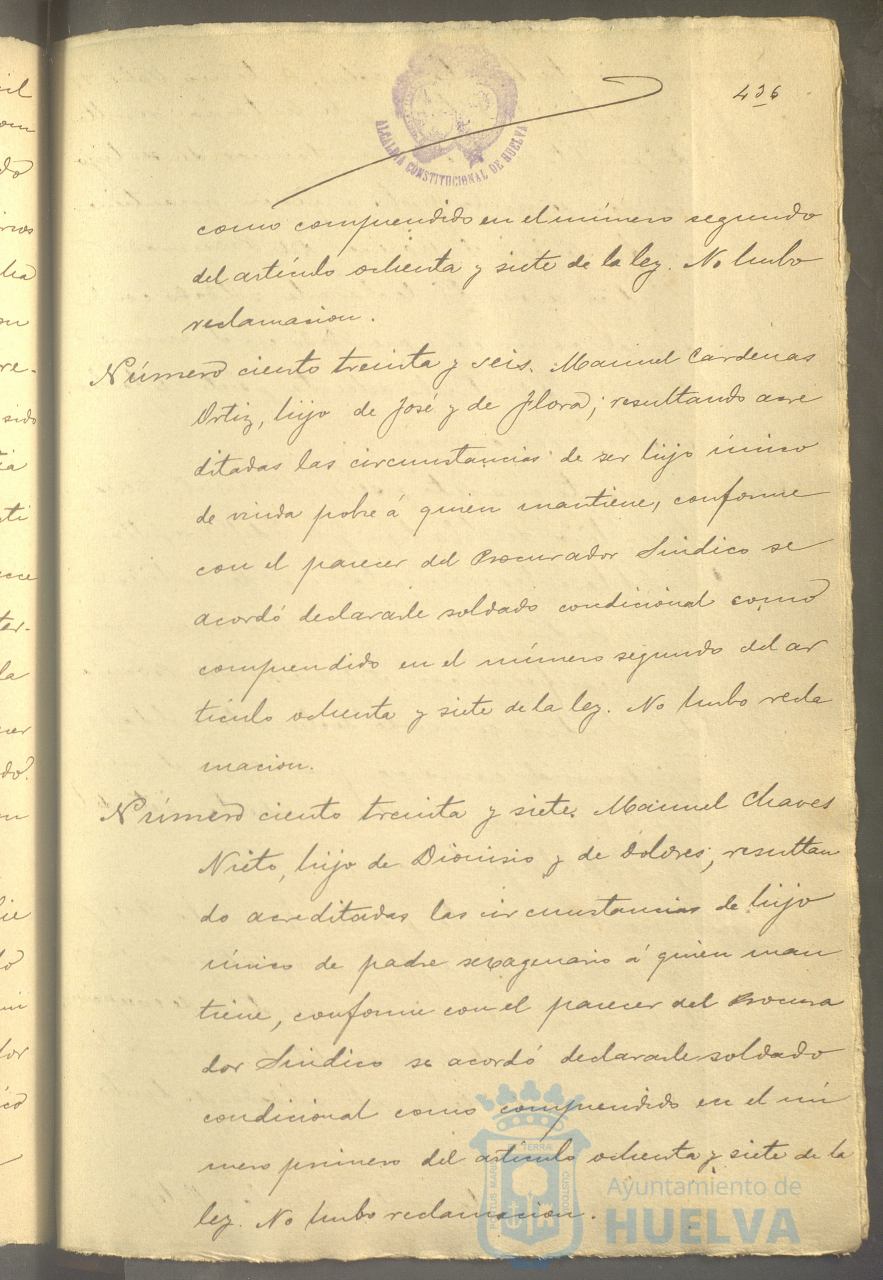 436
ALCALDIA CONSTITUCIONAL DE HUELVA
como comprendido en el número segundo
del artículo ochenta y siete de la ley. No hubo
reclamacion.
Número ciento treinta y seis. Manuel Cardenas
Ortiz, hijo de José y de Flora; resultando acre
ditadas las circunstancias de ser hijo único
de viuda pobre á quien mantiene, conforme
con el parecer del Procurador Sindico se
acordó declararle soldado condicional como
comprendido en el número segundo del ar
tículo ochenta y siete de la ley. No hubo recla
macion.
Número ciento treinta y siete. Manuel Chaves
Nieto, hijo de Dionisio y de Dolores; resultan
do acreditadas las circunstancias de hijo
único de padre sexagenario á quien man
tiene, conforme con el parecer del Procura
dor Sindico se acordó declararle soldado
condicional como comprendido en el nú
mero primero del artículo ochenta y siete de la
ley. No hubo reclamacion.
Ayuntamiento de
HUELVA